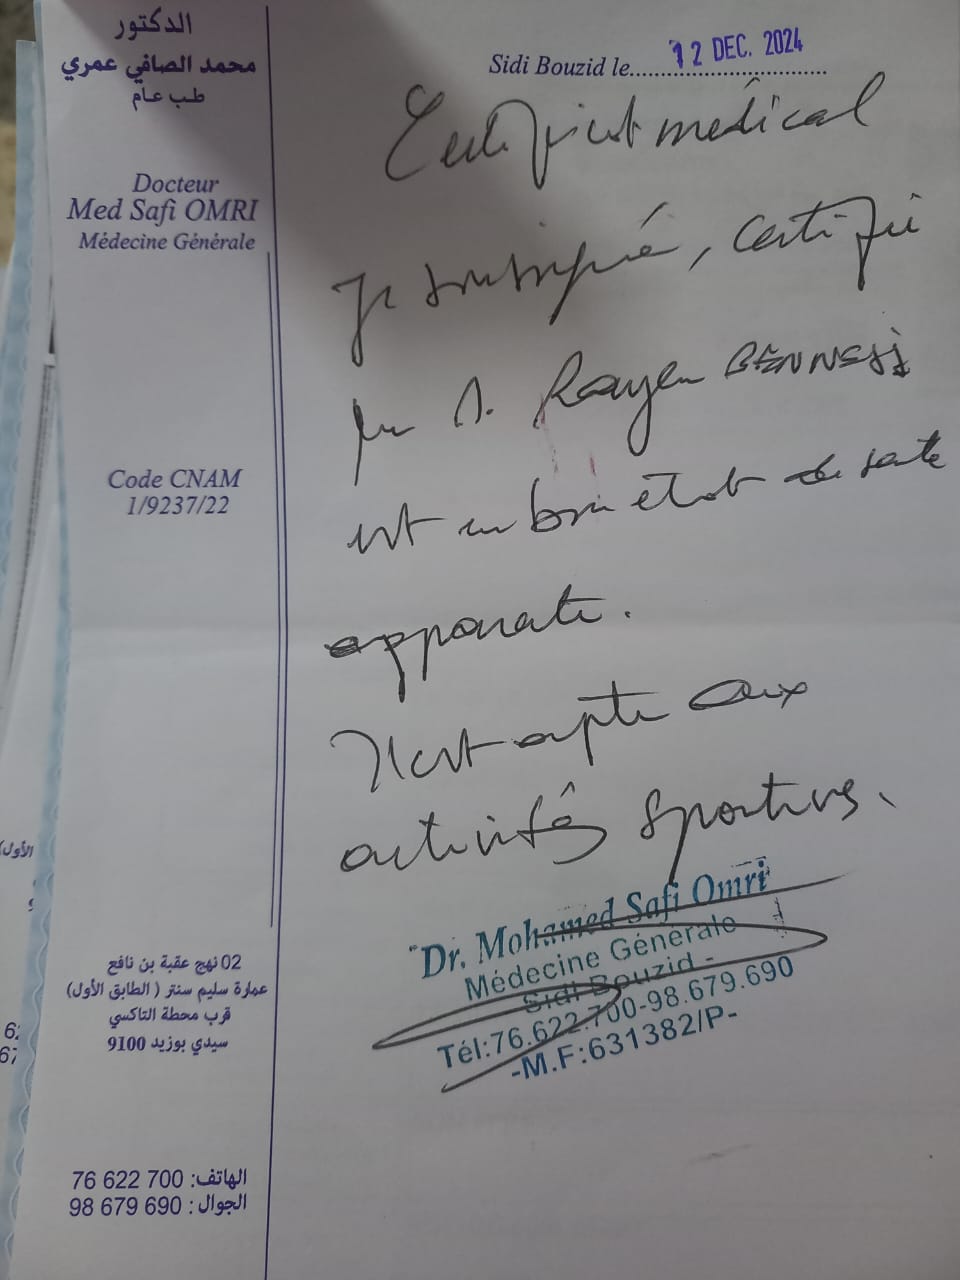 الدكتور
محمد الصافي عمري
طب عام
Docteur
Med Safi OMRI
Médecine Générale
Code CNAM
1/9237/22
02 نهج عقبة بن نافع
عمارة سليم سنتر ( الطابق الأول)
قرب محطة التاكسي
سيدي بوزيد 9100
الهاتف: 700 622 76
الجوال : 690 679 98
Sidi Bouzid le.......... 12 DEC. 2024
Certificat médical
Je soussigné, certifie
que M. Rayen
est en bon état de santé
apparente.
Il est apte aux
activités sportives.
Dr. Mohamed Safi Omri
Médecine Générale
Sidi Bouzid -
Tél:76.622.700-98.679.690
-M.F:631382/P-
الأول)